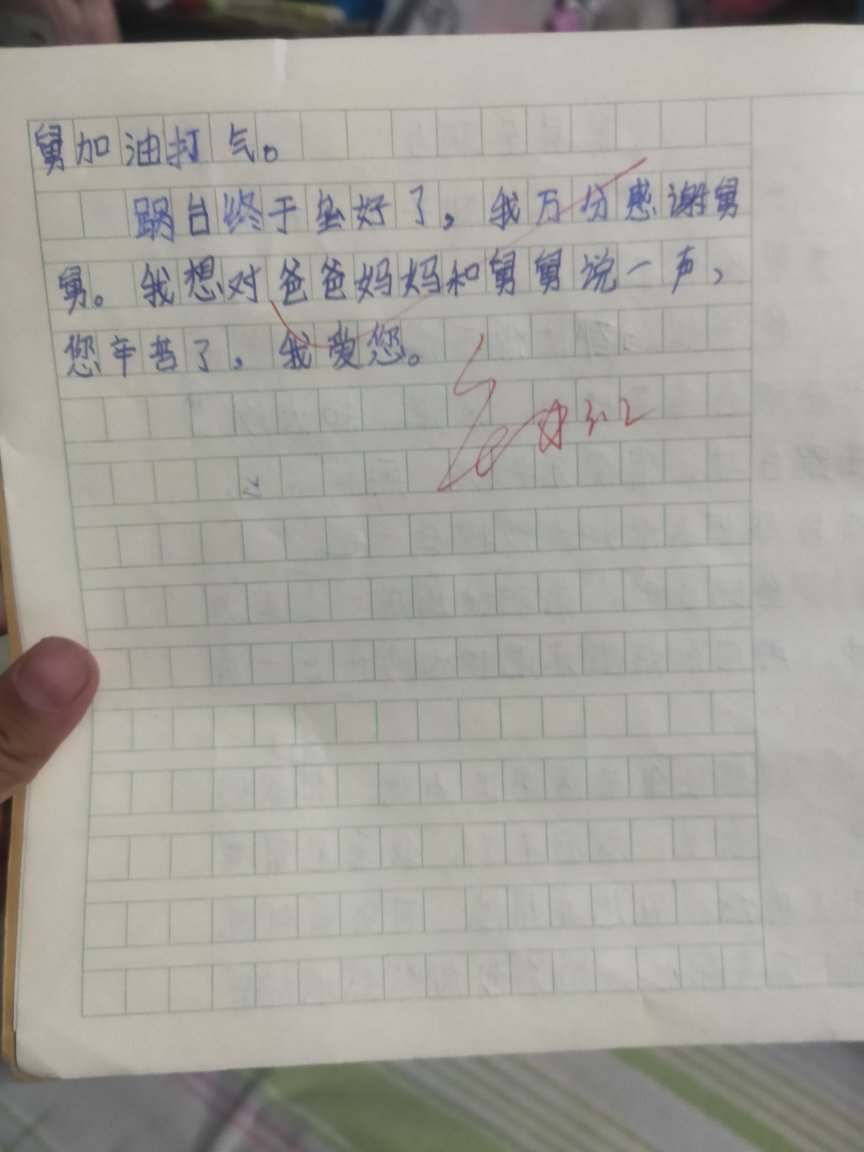 舅加油打气。
锅台终于垒好了，我万分感谢舅
舅。我想对爸爸妈妈和舅舅说一声，
您辛苦了，我爱您。
3.2